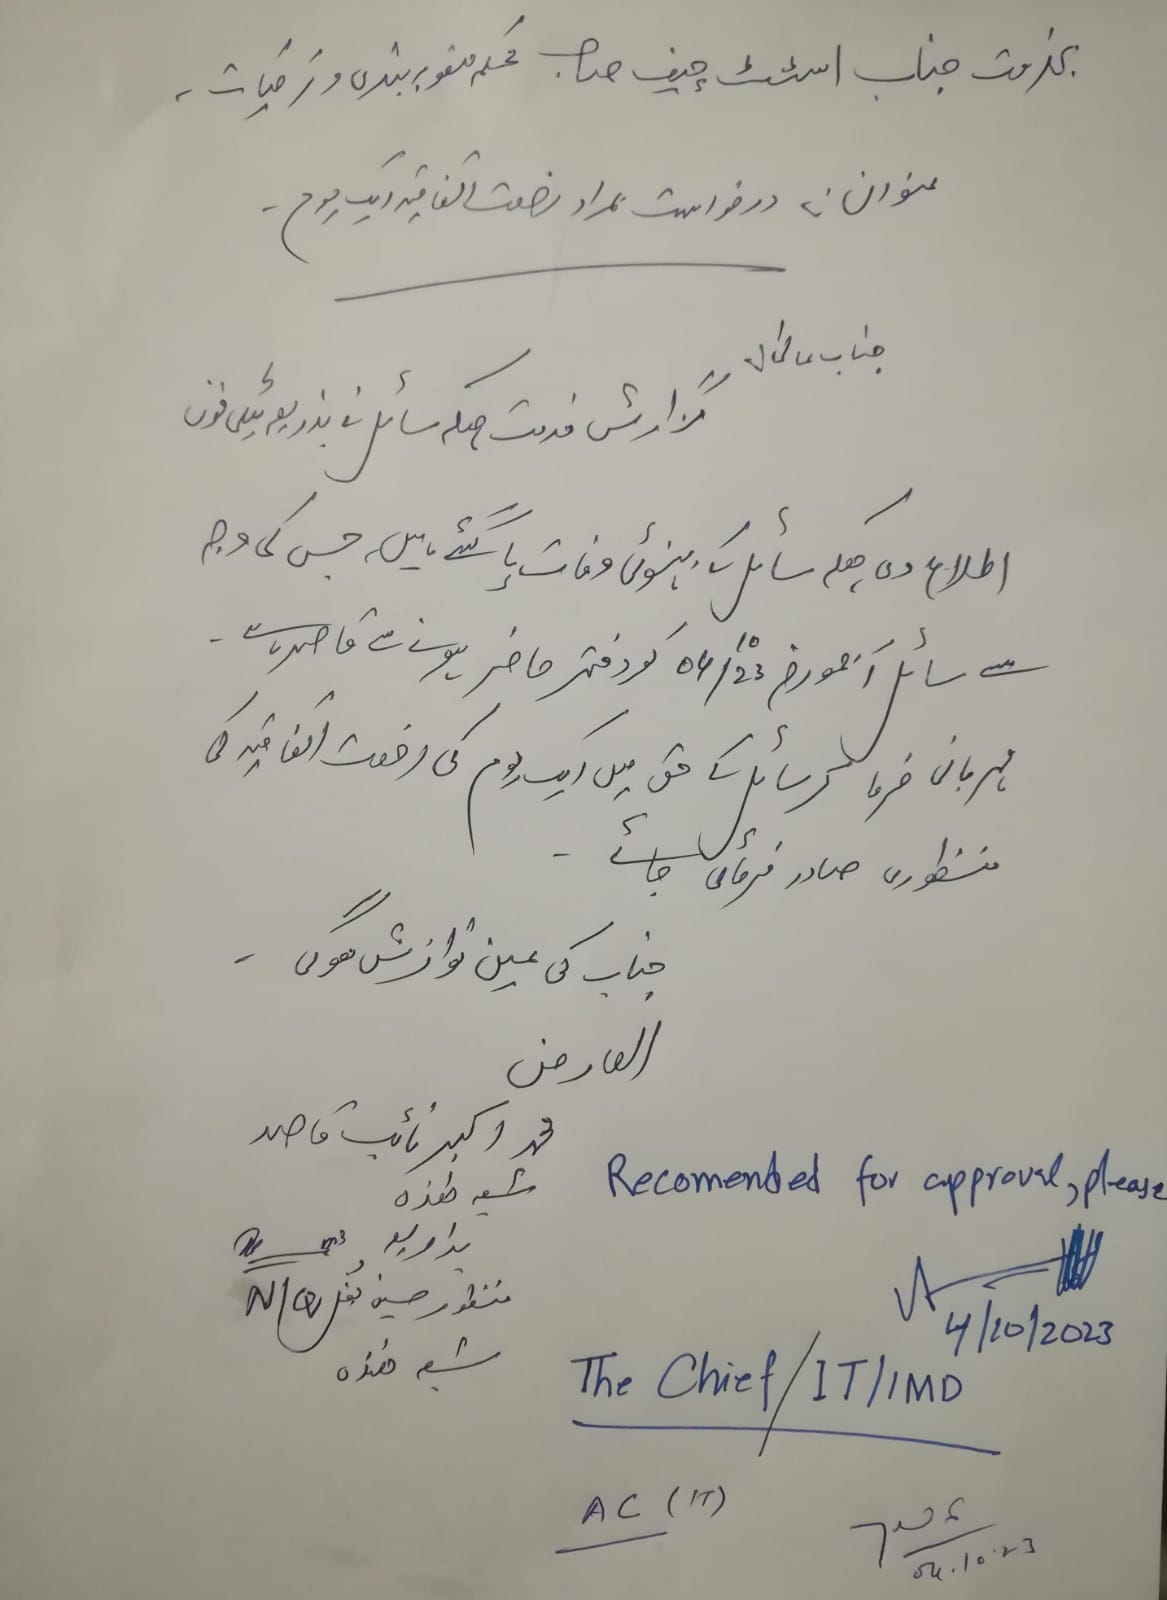 بخدمت جناب اسسٹنٹ چیف صاحب محکمہ منصوبہ بندی و ترقیات ۔
عنوان :۔ درخواست بمراد رخصت اتفاقیہ ایک یوم ۔
جناب عالی!
گزارش خدمت ہیکہ سائل نے بذریعہ ٹیلی فون
اطلاع دی ہیکہ سائل کے بہنوئی وفات پا گئے ہیں۔ جس کی وجہ
سے سائل آج مورخہ 04/10/23 کو دفتر حاضر ہونے سے قاصر ہے ۔
مہربانی فرما کر سائل کے حق میں ایک یوم کی رخصت اتفاقیہ کی
منظوری صادر فرمائی جائے ۔
جناب کی عین نوازش ہوگی ۔
العارض
محمد اکبر نائب قاصد
شعبہ ھذہ
بذریعہ
منظور حسین مغل N/Q
شعبہ ھذہ
Recomended for approval, please
4/10/2023
The Chief/IT/IMD
AC (IT)
04.10.23